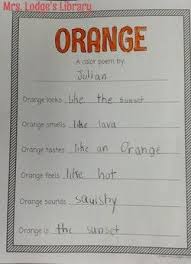 Mrs. Lodge's Library
ORANGE
A color poem by:
Julian
Orange looks like the sunset
Orange smells like lava
Orange tastes like an Orange
Orange feels like hot
Orange sounds squishy
Orange is the sunset